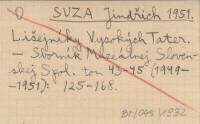 O SUZA Jindřich 1951.
Lišejníky Vysokých Tater.
— Sborník Muzeálnej Sloven-
skej Spol. tom 43-45 (1949-
-1951): 125-168.